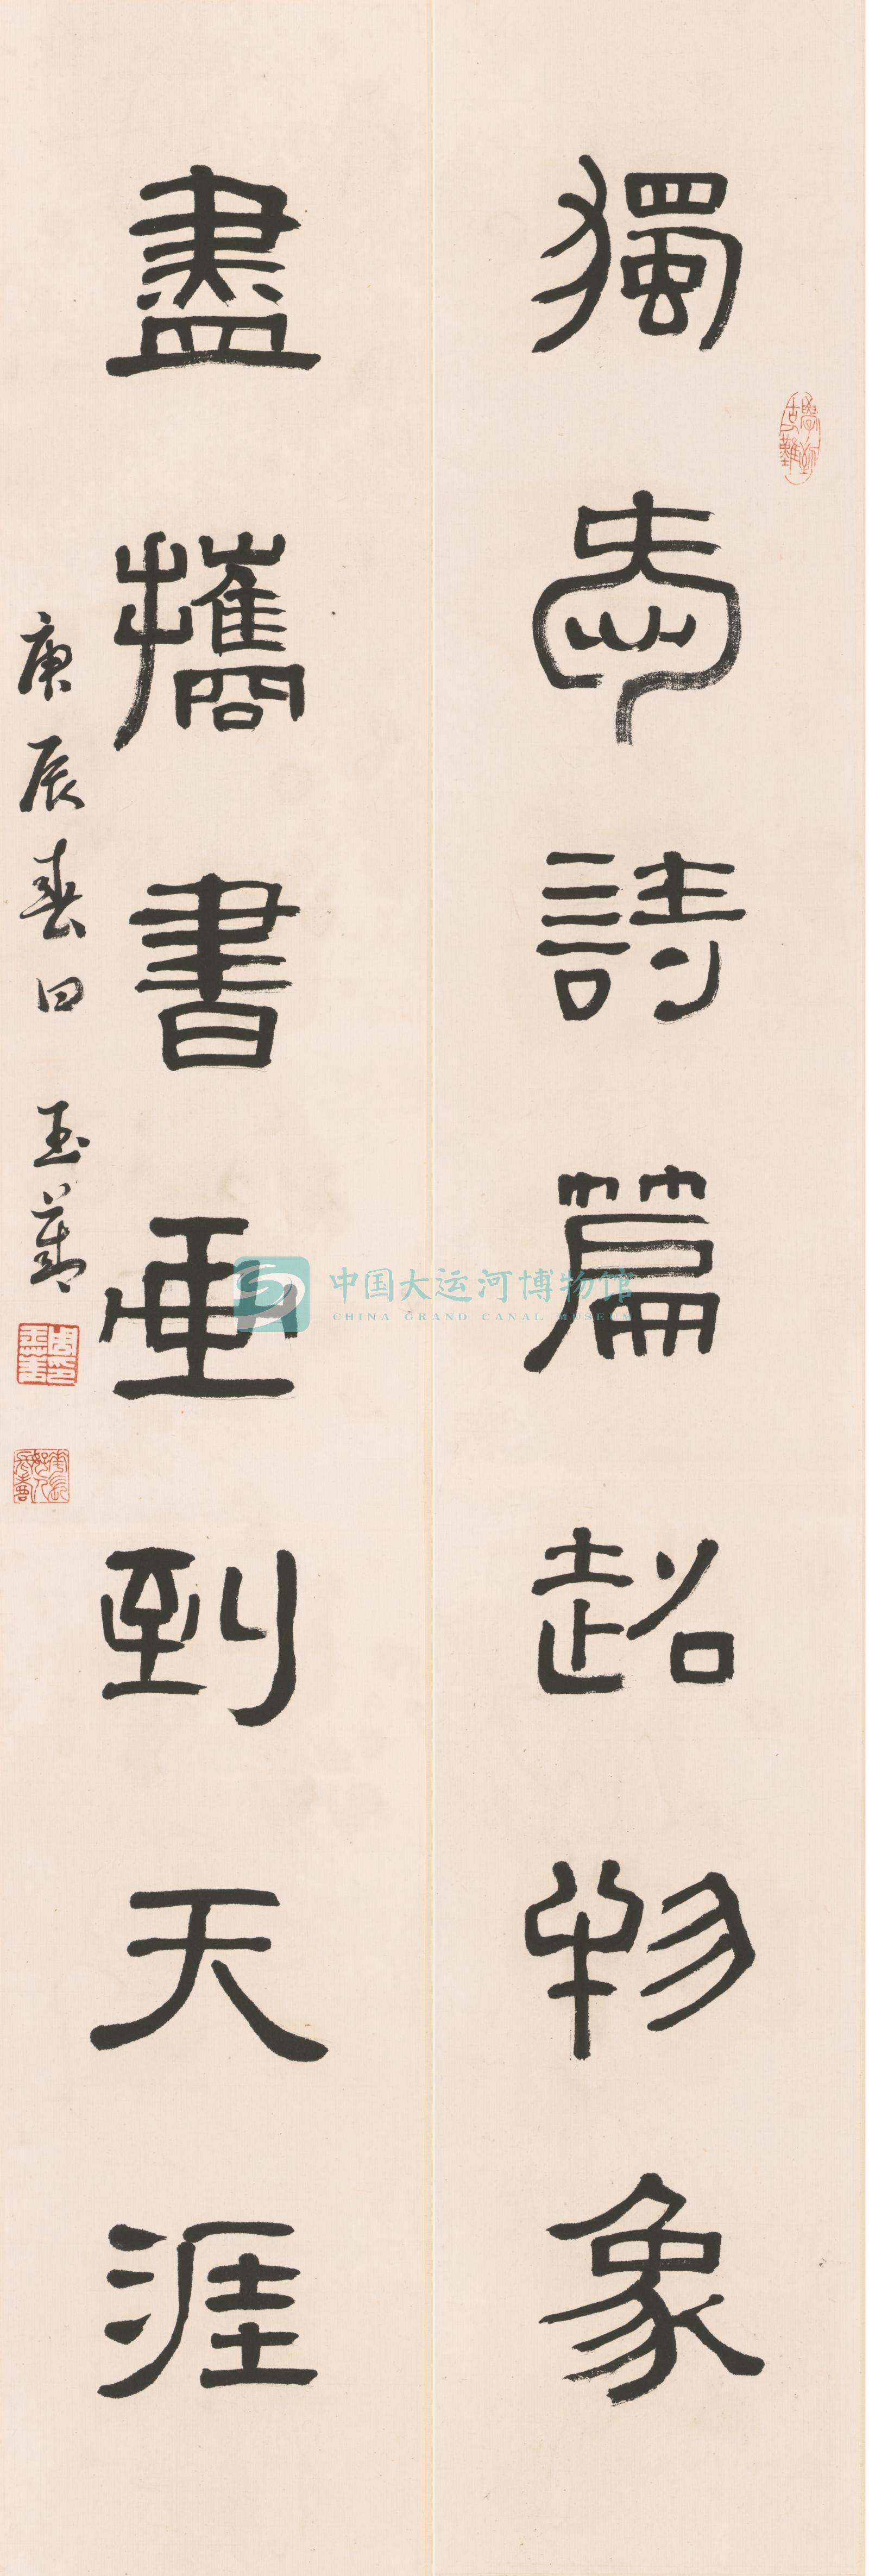 獨愛詩篇超物象
盡攜書畫到天涯
庚辰春日 玉
中国大运河博物馆
CHINA GRAND CANAL MUSEUM